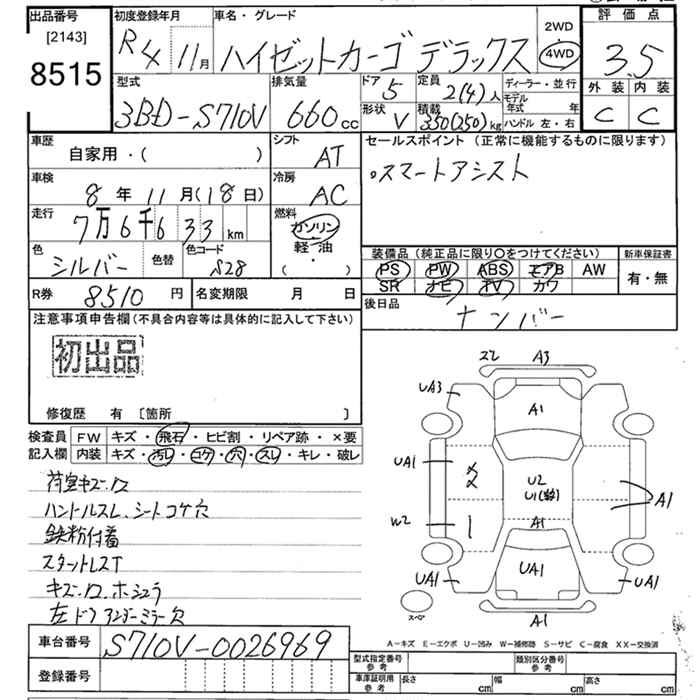 出品番号 初度登録年月 車名・グレード 2WD 評価点
[2143] R4 11月 ハイゼットカーゴ デラックス 4WD 3.5
8515
型式 排気量 ドア 定員 ディーラー・並行 外装 内装
3BD-S710V 660cc 5 2(4)人 モデル年式 年 C C
形状 積載 ハンドル 左・右
V 350(250)kg
車歴 シフト セールスポイント (正常に機能するものに限ります)
自家用・( ) AT 。スマートアシスト
車検 冷房
8年 11月(18日) AC
走行 燃料
7万6千633km ガソリン
軽油
( ・ )
色 色替 色コード
シルバー S28
装備品 (純正品に限り○をつけてください) 新車保証書
PS PW ABS エアB AW 有・無
SR ナビ TV カワ
R券 8510円 名変期限 月 日
後日品 ナンバー
注意事項申告欄(不具合内容等は具体的に記入して下さい)
初出品
修復歴 有 [箇所 ]
検査員 FW キズ・飛石・ヒビ割・リペア跡・×要
記入欄 内装 キズ・汚レ・コゲ・穴・スレ・キレ・破レ
荷室キズ・
ハンドルスレ、シートコゲ穴
鉄粉付着
左ドアアンダーミラー穴
22 A3
UA3
A1
UA1 U2
U1
A1
W2 A1
UA1 UA1 UA1
A1
スペア
A-キズ E-エクボ U-凹み W-補修跡 S-サビ C-腐食 XX-交換済
車台番号 S710V-0026969
登録番号
型式指定番号 参考 類別区分番号 参考
車庫証明用 参考 長さ cm 幅 cm 高さ cm